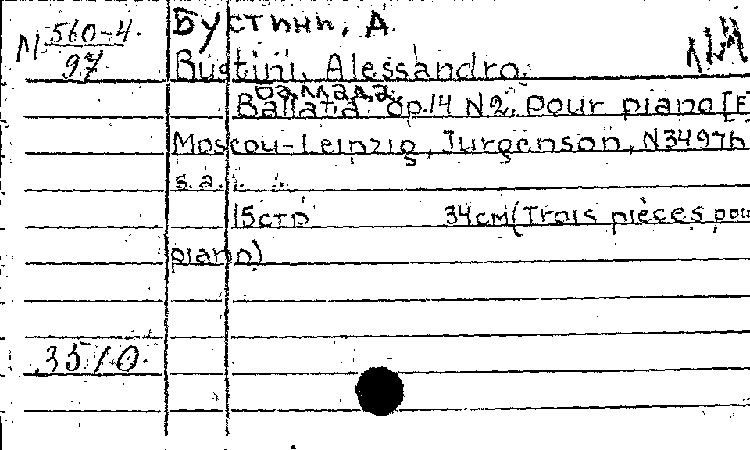 М 560-4
97
Бустини, А.
Bustini, Alessandro.
Баллада.
Ballata. Op.14 N2. pour piano [E
Moscou-Leipzig, Jurgenson, N34976
s.a.
15стр 34см (Trois pièces pour
piano)
3510.